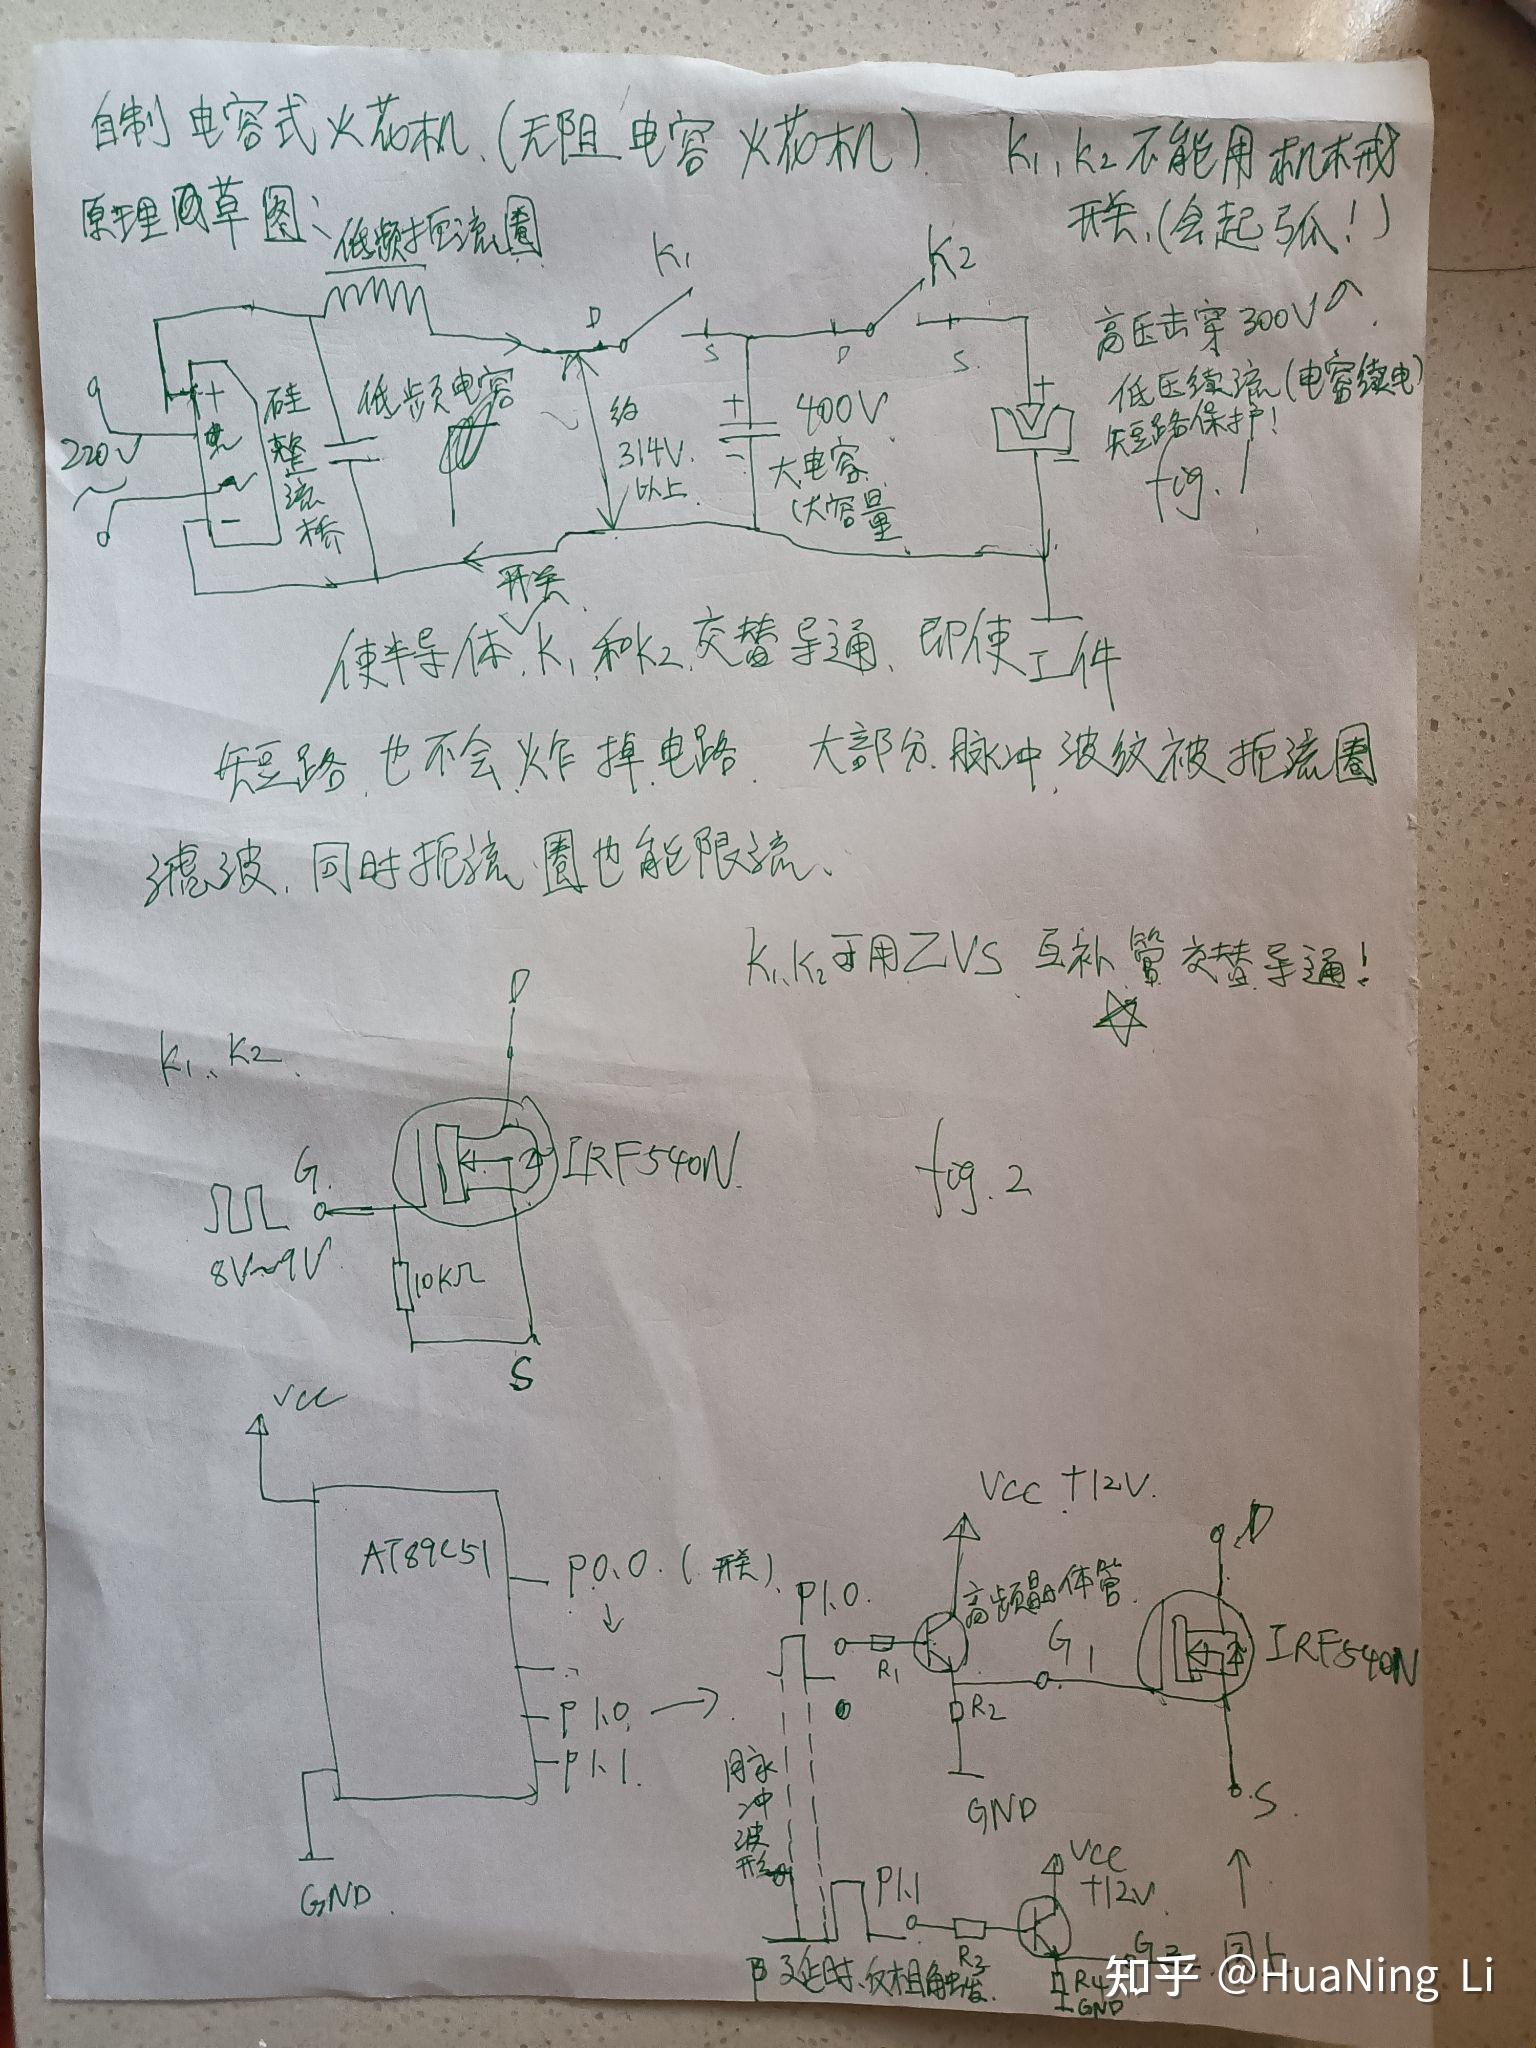 自制电容式火花机、(无阻电容火花机)
K1、K2不能用机械
开关、(会起弧!)
原理草图、
低频扼流圈
K1
K2
D
S
D
S
高压击穿300V
低压续流(电容续电)
短路保护!
fig.1
220V
+
-
硅整流桥
低频电容
约
314V
以上
+
-
400V
大电容
(大容量
+
-
开关
使半导体K1和K2交替导通、即使工件
短路也不会炸掉电路、大部分脉冲波纹被扼流圈
滤波、同时扼流圈也能限流、
K1、K2可用ZVS互补管交替导通!
K1、K2
D
G
IRF540N
8V~9V
10KΩ
S
fig.2
VCC
AT89C51
P0.0(开关)
P1.0
P1.1
GND
VCC +12V
高频晶体管
P1.0
R1
G1
R2
GND
D
IRF540N
S
脉冲波形
P1.1
R3
VCC
+12V
R4
GND
同上
延时、反相触发
知乎 @HuaNing Li